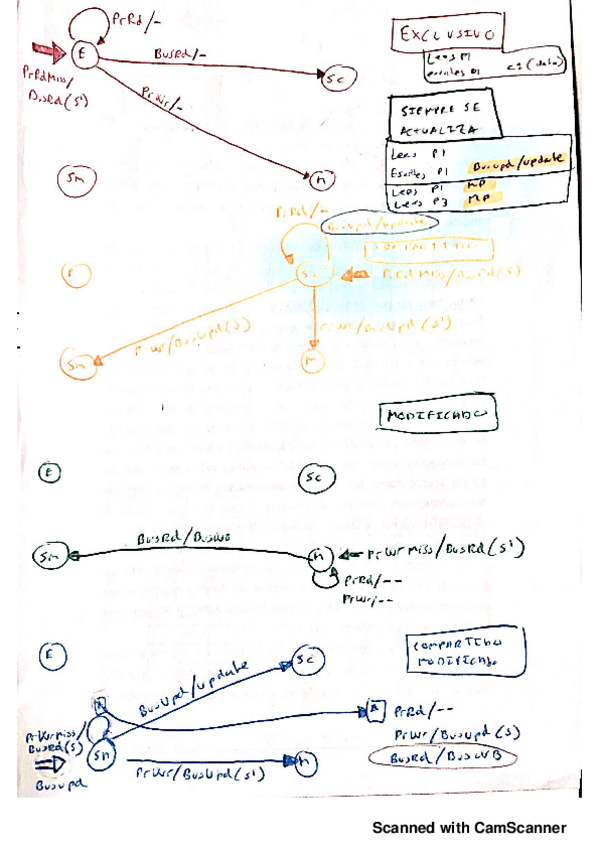 PrRd/-
E
BusRd/-
Sc
PrRdMiss/
BusRd(S')
PrWr/-
Sm
M
EXCLUSIVO
Lees P1
Escribes P1
C2 (dato)
SIEMPRE SE
ACTUALIZA
Lees P1
Escribes P1 Busupd/update
Lees P1 MP
Lees P3 MP
PrRd/-
Busupd/update
COMPARTIDO
E
Sc
PrRdMiss/BusRd(S)
PrWr/BusUpd(S)
PrWr/BusUpd(S')
Sm
M
MODIFICADO
E
Sc
BusRd/BusWB
Sm
M
PrWrMiss/BusRd(S')
PrRd/--
PrWr/--
E
Sc
COMPARTIDO
MODIFICADO
BusUpd/update
A
A
PrRd/--
PrWrMiss/
BusRd(S)
PrWr/BusUpd(S)
Sm
M
BusRd/BusWB
BusUpd
PrWr/BusUpd(S')
Scanned with CamScanner